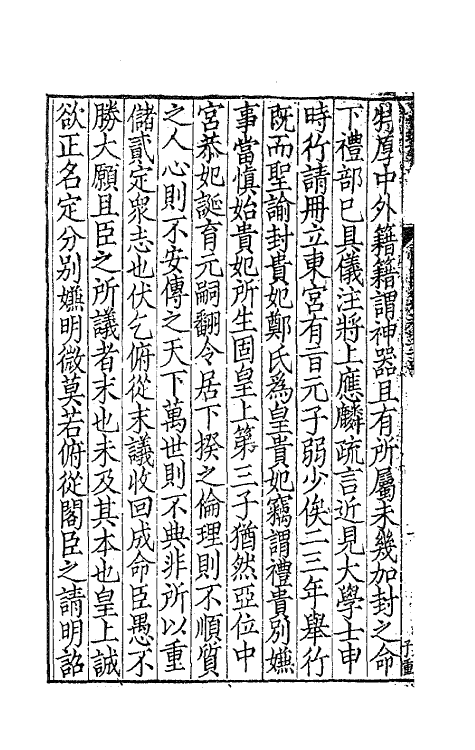 特厚中外籍籍謂神器且有所屬未幾加封之命
下禮部已具儀注將上應麟疏言近見大學士申
時行請冊立東宮有旨元子弱少俟二三年舉行
既而聖諭封貴妃鄭氏爲皇貴妃竊謂禮貴別嫌
事當慎始貴妃所生固皇上第三子猶然亞位中
宮恭妃誕育元嗣翻令居下揆之倫理則不順質
之人心則不安傳之天下萬世則不典非所以重
儲貳定衆志也伏乞俯從末議收回成命臣愚不
勝大願且臣之所議者末也未及其本也皇上誠
欲正名定分別嫌明微莫若俯從閣臣之請明詔